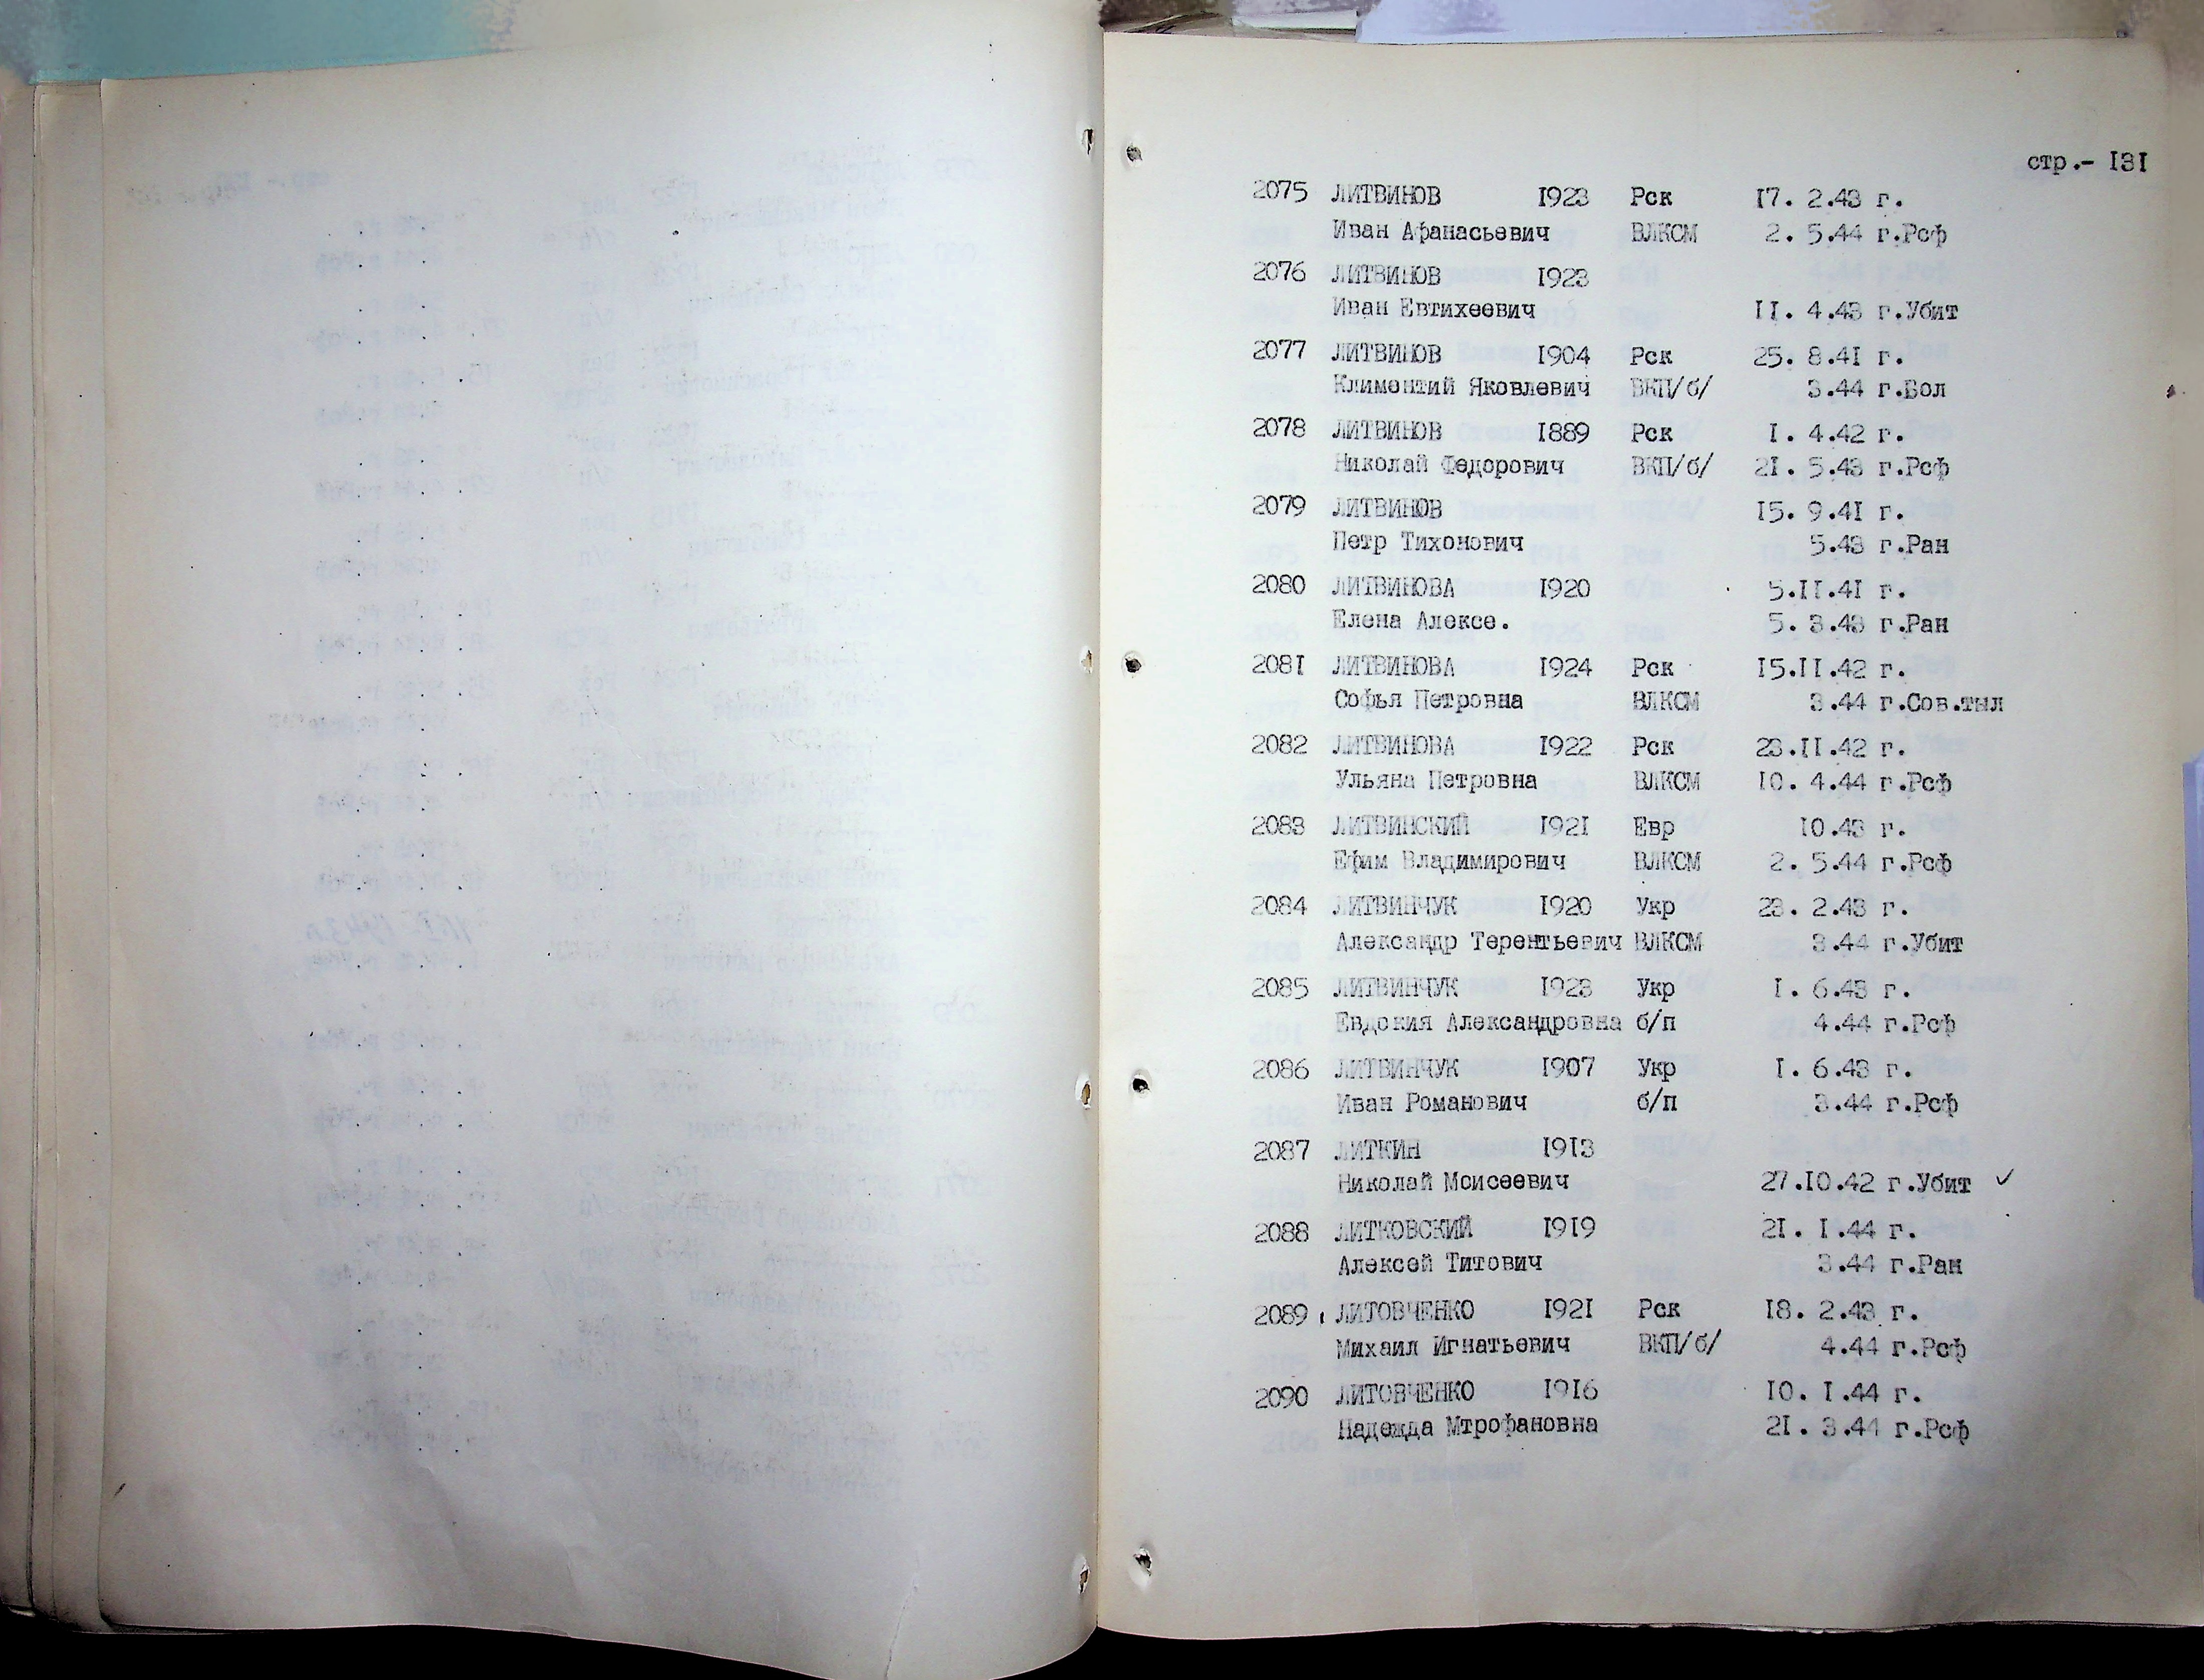 стр.- I3I
2075 ЛИТВИНОВ I923 Рск I7. 2.43 г.
Иван Афанасьевич ВЛКСМ 2. 5.44 г.Рсф
2076 ЛИТВИНОВ I923
Иван Евтихеевич II. 4.43 г.Убит
2077 ЛИТВИНОВ I904 Рск 25. 8.4I г.
Климентий Яковлевич ВКП/б/ 3.44 г.Бол
2078 ЛИТВИНОВ I889 Рск I. 4.42 г.
Николай Федорович ВКП/б/ 2I. 5.43 г.Рсф
2079 ЛИТВИНОВ I5. 9.4I г.
Петр Тихонович 5.43 г.Ран
2080 ЛИТВИНОВА I920 5.II.4I г.
Елена Алексе. 5. 3.43 г.Ран
208I ЛИТВИНОВА I924 Рск I5.II.42 г.
Софья Петровна ВЛКСМ 3.44 г.Сов.тыл
2082 ЛИТВИНОВА I922 Рск 23.II.42 г.
Ульяна Петровна ВЛКСМ I0. 4.44 г.Рсф
2083 ЛИТВИНСКИЙ I92I Евр I0.43 г.
Ефим Владимирович ВЛКСМ 2. 5.44 г.Рсф
2084 ЛИТВИНЧУК I920 Укр 23. 2.43 г.
Александр Терентьевич ВЛКСМ 3.44 г.Убит
2085 ЛИТВИНЧУК I923 Укр I. 6.43 г.
Евдокия Александровна б/п 4.44 г.Рсф
2086 ЛИТВИНЧУК I907 Укр I. 6.43 г.
Иван Романович б/п 3.44 г.Рсф
2087 ЛИТКИН I9I3
Николай Моисеевич 27.I0.42 г.Убит ✓
2088 ЛИТКОВСКИЙ I9I9 2I. I.44 г.
Алексей Титович 3.44 г.Ран
2089 ЛИТОВЧЕНКО I92I Рск I8. 2.43 г.
Михаил Игнатьевич ВКП/б/ 4.44 г.Рсф
2090 ЛИТОВЧЕНКО I9I6 I0. I.44 г.
Надежда Мтрофановна 2I. 3.44 г.Рсф